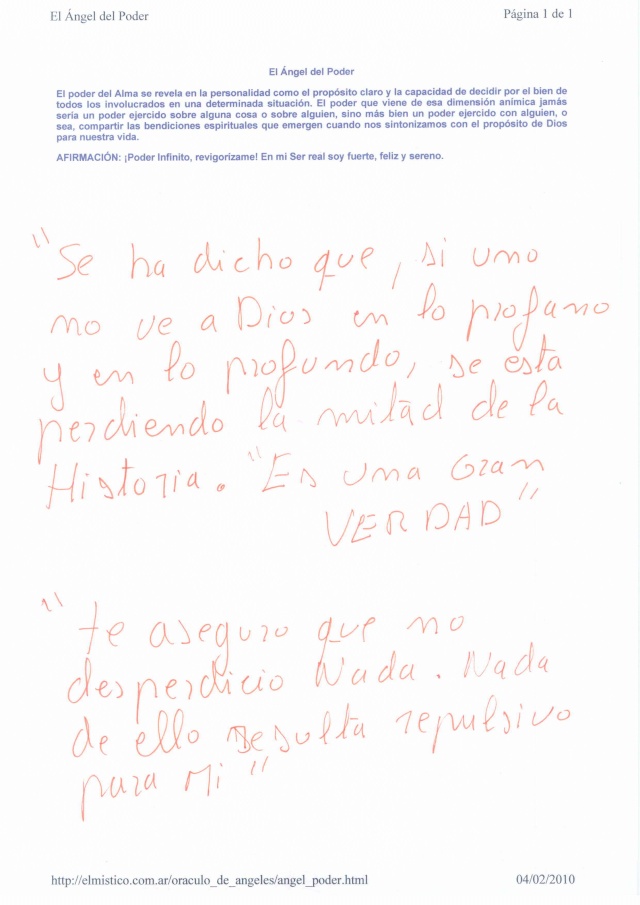 El Ángel del Poder
Página 1 de 1
El Ángel del Poder
El poder del Alma se revela en la personalidad como el propósito claro y la capacidad de decidir por el bien de
todos los involucrados en una determinada situación. El poder que viene de esa dimensión anímica jamás
sería un poder ejercido sobre alguna cosa o sobre alguien, sino más bien un poder ejercido con alguien, o
sea, compartir las bendiciones espirituales que emergen cuando nos sintonizamos con el propósito de Dios
para nuestra vida.
AFIRMACIÓN: ¡Poder Infinito, revigorízame! En mi Ser real soy fuerte, feliz y sereno.
"Se ha dicho que, si uno
no ve a Dios en lo profano
y en lo profundo, se está
perdiendo la mitad de la
Historia. "Es una Gran
VERDAD"
"te aseguro que no
desperdicio Nada. Nada
de ello resulta repulsivo
para Mi"
http://elmistico.com.ar/oraculo_de_angeles/angel_poder.html
04/02/2010